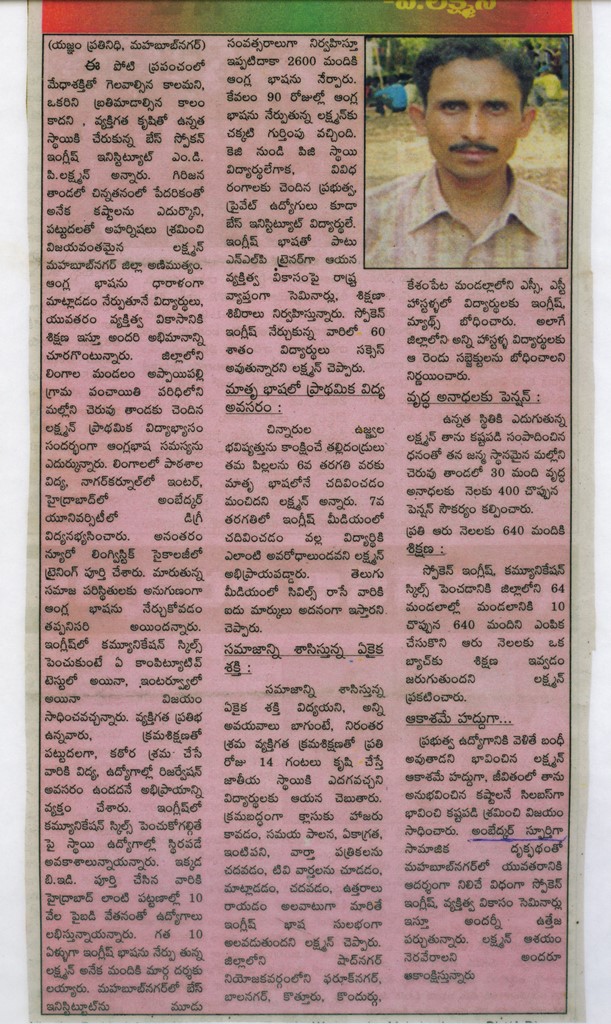 -పి.లక్ష్మన్
(యజ్ఞం ప్రతినిధి, మహబూబ్‌నగర్)
ఈ పోటి ప్రపంచంలో
మేధాశక్తితో గెలవాల్సిన కాలమని,
ఒకరిని బ్రతిమాడాల్సిన కాలం
కాదని , వ్యక్తిగత కృషితో ఉన్నత
స్థాయికి చేరుకున్న బేస్ స్పోకెన్
ఇంగ్లీష్ ఇనిస్టిట్యూట్ ఎం.డి.
పి.లక్ష్మన్ అన్నారు. గిరిజన
తాండలో చిన్నతనంలో పేదరికంతో
అనేక కష్టాలను ఎదుర్కొని,
పట్టుదలతో అహర్నిషలు శ్రమించి
విజయవంతమైన లక్ష్మన్
మహబూబ్‌నగర్ జిల్లా అణిముత్యం.
ఆంగ్ల భాషను ధారాళంగా
మాట్లాడడం నేర్పుతూనే విద్యార్థులు,
యువతరం వ్యక్తిత్వ వికాసానికి
శిక్షణ ఇస్తూ అందరి అభిమానాన్ని
చూరగొంటున్నారు. జిల్లాలోని
లింగాల మండలం అప్పాయిపల్లి
గ్రామ వంచాయితి పరిధిలోని
మల్లోని చెరువు తాండకు చెందిన
లక్ష్మన్ ప్రాథమిక విద్యాభ్యాసం
సందర్భంగా ఆంగ్లభాష సమస్యను
ఎదుర్కున్నారు. లింగాలలో పాఠశాల
విద్య, నాగర్‌కర్నూల్‌లో ఇంటర్,
హైద్రాబాద్‌లో అంబేద్కర్
యూనివర్సిటీలో డిగ్రీ
విద్యనభ్యసించారు. అనంతరం
న్యూరో లింగ్విస్టిక్ సైకాలజీలో
ట్రైనింగ్ పూర్తి చేశారు. మారుతున్న
సమాజ పరిస్థితులకు అనుగుణంగా
ఆంగ్ల భాషను నేర్చుకోవడం
తప్పనిసరి అయిందన్నారు.
ఇంగ్లీష్‌లో కమ్యూనికేషన్ స్కిల్స్
పెంచుకుంటే ఏ కాంపిట్యూటివ్
టెస్టులో అయినా, ఇంటర్వ్యూలో
అయినా విజయం
సాధించవచ్చన్నారు. వ్యక్తిగత ప్రతిభ
ఉన్నవారు, క్రమశిక్షణతో
పట్టుదలగా, కఠోర శ్రమ చేసే
వారికి విద్య, ఉద్యోగాల్లో రిజర్వేషన్
అవసరం ఉండదనే అభిప్రాయాన్ని
వ్యక్తం చేశారు. ఇంగ్లీష్‌లో
కమ్యూనికేషన్ స్కిల్స్ పెంచుకోగల్గితే
పై స్థాయి ఉద్యోగాల్లో స్థిరపడే
అవకాశాలున్నాయన్నారు. ఇక్కడ
బి.ఇడి. పూర్తి చేసిన వారికి
హైద్రాబాద్ లాంటి పట్టణాల్లో 10
వేల పైబడి వేతనంతో ఉద్యోగాలు
లభిస్తున్నాయన్నారు. గత 10
ఏళ్ళుగా ఇంగ్లీష్ భాషను నేర్పు తున్న
లక్ష్మన్ అనేక మందికి మార్గ దర్శకు
లయ్యారు. మహబూబ్‌నగర్‌లో బేస్
ఇనిస్టిట్యూట్‌ను మూడు
సంవత్సరాలుగా నిర్వహిస్తూ
ఇప్పటిదాకా 2600 మందికి
ఆంగ్ల భాషను నేర్పారు.
కేవలం 90 రోజుల్లో ఆంగ్ల
భాషను నేర్పుతున్న లక్ష్మన్‌కు
చక్కటి గుర్తింపు వచ్చింది.
కెజి నుండి పిజి స్థాయి
విద్యార్థులేగాక, వివిధ
రంగాలకు చెందిన ప్రభుత్వ,
ప్రైవేట్ ఉద్యోగులు కూడా
బేస్ ఇనిస్టిట్యూట్ విద్యార్థులే.
ఇంగ్లీష్ భాషతో పాటు
ఎన్ఎల్‌పి ట్రైనర్‌గా ఆయన
వ్యక్తిత్వ వికాసంపై రాష్ట్ర
వ్యాప్తంగా సెమినార్లు, శిక్షణా
శిబిరాలు నిర్వహిస్తున్నారు. స్పోకెన్
ఇంగ్లీష్ నేర్చుకున్న వారిలో 60
శాతం విద్యార్థులు సక్సెస్
అవుతున్నారని లక్ష్మన్ చెప్పారు.
మాతృ భాషలో ప్రాథమిక విద్య
అవసరం :
చిన్నారుల ఉజ్వల
భవిష్యత్తును కాంక్షించే తల్లిదండ్రులు
తమ పిల్లలను 6వ తరగతి వరకు
మాతృ భాషలోనే చదివించడం
మంచిదని లక్ష్మన్ అన్నారు. 7వ
తరగతిలో ఇంగ్లీష్ మీడియంలో
చదివించడం వల్ల విద్యార్థికి
ఎలాంటి అవరోధాలుండవని లక్ష్మన్
అభిప్రాయపడ్డారు. తెలుగు
మీడియంలో సివిల్స్ రాసే వారికి
ఐదు మార్కులు అదనంగా ఇస్తారని
చెప్పారు.
సమాజాన్ని శాసిస్తున్న ఏకైక
శక్తి :
సమాజాన్ని శాసిస్తున్న
ఏకైక శక్తి విద్యయని, అన్ని
అవయవాలు బాగుంటే, నిరంతర
శ్రమ వ్యక్తిగత క్రమశిక్షణతో ప్రతి
రోజు 14 గంటలు కృషి చేస్తే
జాతీయ స్థాయికి ఎదగవచ్చని
విద్యార్థులకు ఆయన చెబుతారు.
క్రమబద్ధంగా క్లాసుకు హాజరు
కావడం, సమయ పాలన, ఏకాగ్రత,
ఇంటిపని, వార్తా పత్రికలను
చదవడం, టివి వార్తలను చూడడం,
మాట్లాడడం, చదవడం, ఉత్తరాలు
రాయడం అలవాటుగా మారితే
ఇంగ్లీష్ భాష సులభంగా
అలవడుతుందని లక్ష్మన్ చెప్పారు.
జిల్లాలోని షాద్‌నగర్
నియోజకవర్గంలోని ఫరూక్‌నగర్,
బాలనగర్, కొత్తూరు, కొందుర్గు,
కేశంపేట మండల్లాలోని ఎస్సీ, ఎస్టీ
హాస్టళ్ళలో విద్యార్థులకు ఇంగ్లీష్,
మ్యాథ్స్ బోధించారు. అలాగే
జిల్లాలోని అన్ని హాస్టళ్ళ విద్యార్థులకు
ఆ రెండు సబ్జెక్టులను బోధించాలని
నిర్ణయించారు.
వృద్ధ అనాధలకు పెన్షన్ :
ఉన్నత స్థితికి ఎదుగుతున్న
లక్ష్మన్ తాను కష్టపడి సంపాదించిన
ధనంతో తన జన్మ స్థానమైన మల్లోని
చెరువు తాండలో 30 మంది వృద్ధ
అనాధలకు నెలకు 400 చొప్పున
పెన్షన్ సౌకర్యం కల్పించారు.
ప్రతి ఆరు నెలలకు 640 మందికి
శిక్షణ :
స్పోకెన్ ఇంగ్లీష్, కమ్యూనికేషన్
స్కిల్స్ పెంచడానికి జిల్లాలోని 64
మండలాల్లో మండలానికి 10
చొప్పున 640 మందిని ఎంపిక
చేసుకొని ఆరు నెలలకు ఒక
బ్యాచ్‌కు శిక్షణ ఇవ్వడం
జరుగుతుందని లక్ష్మన్
ప్రకటించారు.
ఆకాశమే హద్దుగా...
ప్రభుత్వ ఉద్యోగానికి వెళితే బంధీ
అవుతాడని భావించిన లక్ష్మన్
ఆకాశమే హద్దుగా, జీవితంలో తాను
అనుభవించిన కష్టాలనే సిలబస్‌గా
భావించి కష్టపడి శ్రమించి విజయం
సాధించారు. అంబేద్కర్ స్ఫూర్తిగా
సామాజిక దృక్పథంతో
మహబూబ్‌నగర్‌లో యువతరానికి
ఆదర్శంగా నిలిచే విధంగా స్పోకెన్
ఇంగ్లీష్, వ్యక్తిత్వ వికాసం సెమినార్లు
ఇస్తూ అందర్నీ ఉత్తేజ
పర్చుతున్నారు. లక్ష్మన్ ఆశయం
నెరవేరాలని అందరూ
ఆకాంక్షిస్తున్నారు